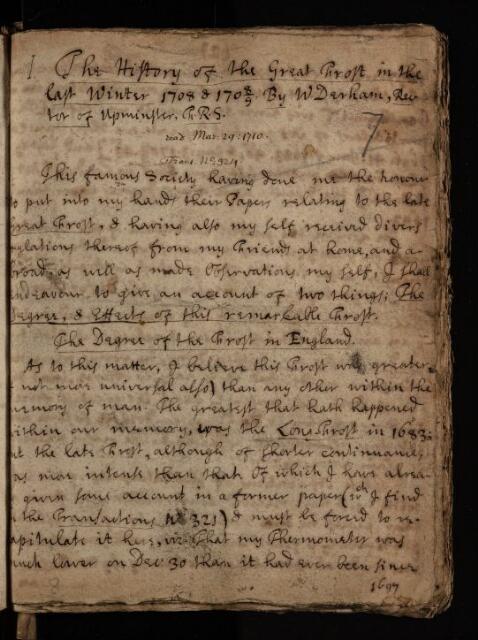 1 The History of the Great Frost in the
last Winter 1708 & 170 8/9 By W Derham, Rec
tor of Upminster, FRS.
read Mar. 29: 1710.
Trans. No 324
7
This famous Society having done me the honour
to put into my hands their Papers relating to the late
great Frost, & having also my self received divers
relations thereof from my Friends at home, and a-
broad, as well as made Observations my self, I shall
endeavour to give an account of two things; The
Degree, & Effects of this remarkable Frost.
The Degree of the Frost in England.
As to this matter, I believe this Frost was greater
not more universal also) than any other within the
memory of man. The greatest that hath happened
within our memory, was the Long-Frost in 1683:
but the late Frost, although of shorter continuance,
was more intense than that. Of which I have alrea-
given some account in a former paper (wch I find
the Transactions No 321) & must be forced to re-
capitulate it here, viz. That my Thermometer was
much lower on Dec. 30 than it had ever been since
1697